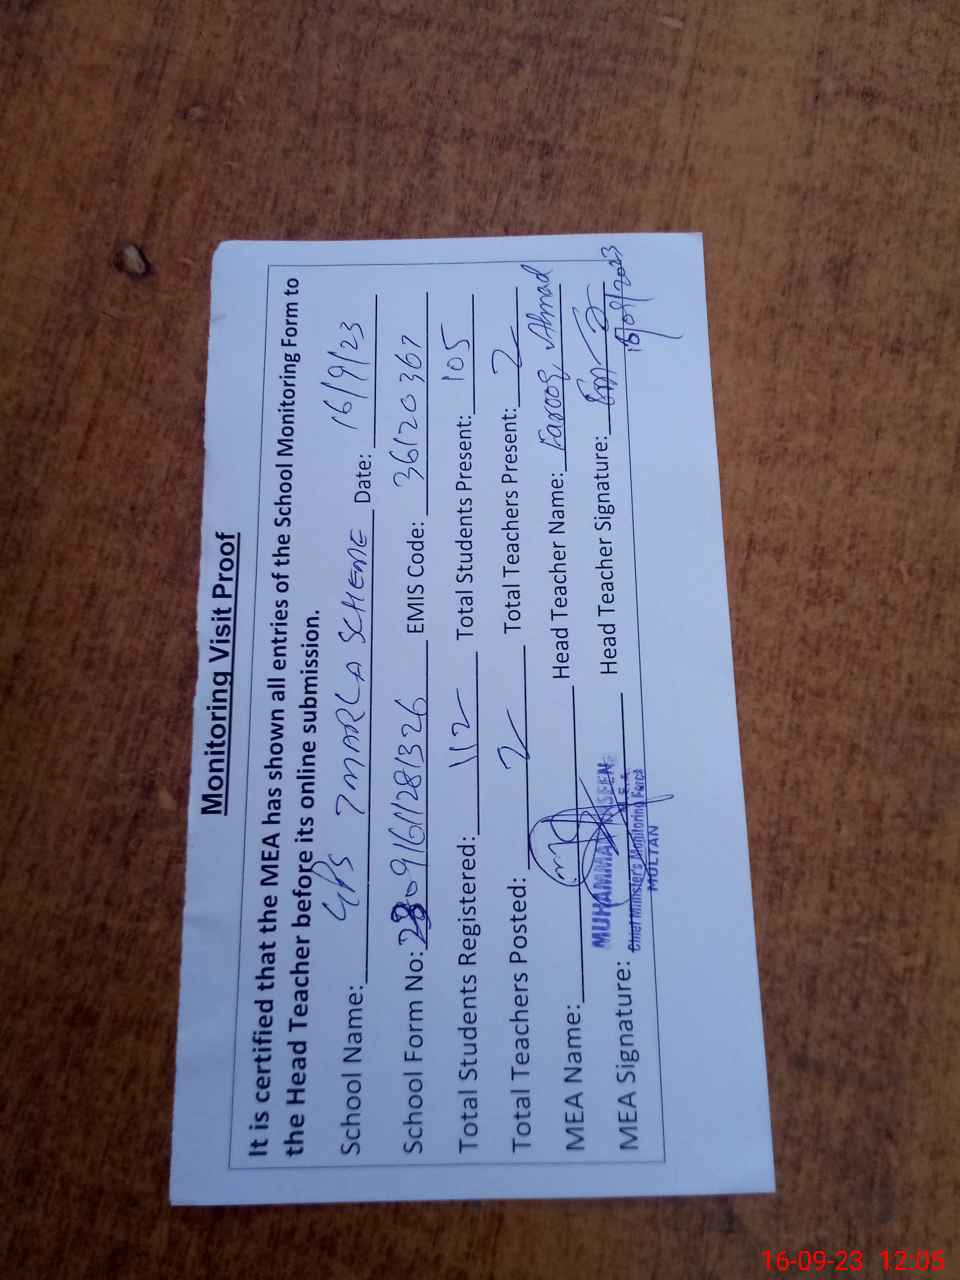 Monitoring Visit Proof
It is certified that the MEA has shown all entries of the School Monitoring Form to
the Head Teacher before its online submission.
School Name: GPS 7 MARLA SCHEME Date: 16/9/23
School Form No: 28091611281326 EMIS Code: 36120367
Total Students Registered: 112 Total Students Present: 105
Total Teachers Posted: 2 Total Teachers Present: 2
MEA Name: Head Teacher Name: Farooq Ahmad
MUHAMMAD
MEA Signature: Head Teacher Signature:
16/09/2023
Chief Minister's Monitoring Force
MULTAN
16-09-23 12:05